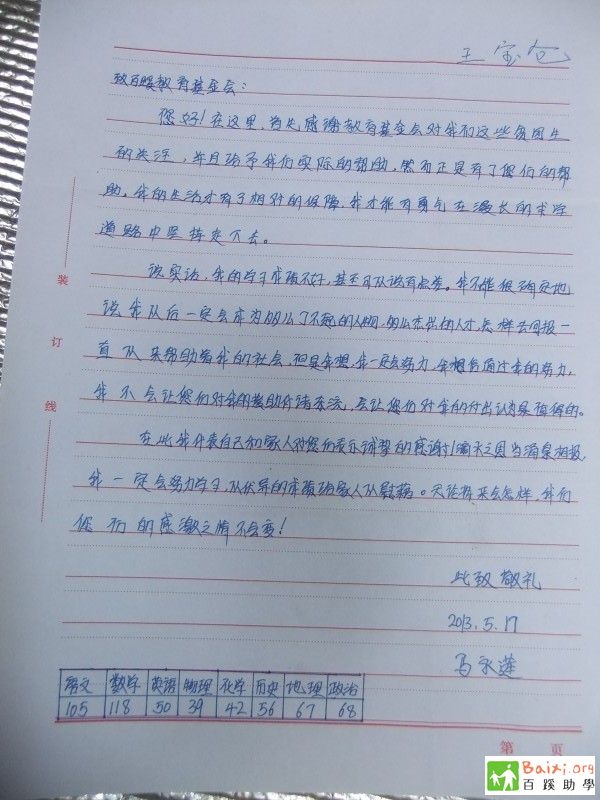 王宝仓
致百蹊教育基金会：
您好！在这里，首先感谢教育基金会对我们这些贫困生
的关注，并且给予我们实际的帮助，然而正是有了您们的帮
助，我的生活才有了相对的保障，我才能有勇气在漫长的求学
道路中坚持走下去。
说实话，我的学习成绩不好，甚至可以说有点差。我不能很确定地
说我以后一定会成为多么了不起的人啊，多么杰出的人才，怎样去回报一
直以来帮助着我的社会，但是我想，我一定会努力，我相信通过我的努力，
我不会让您们对我的援助付诸东流，会让您们对我的付出认为是值得的。
在此我代表自己和家人对您们表示诚挚的感谢！滴水之恩当涌泉相报，
我一定会努力学习，以优异的成绩给家人以慰藉。无论将来会怎样，我们
您们的感激之情不会变！
此致敬礼
2013.5.17
马永莲
语文 数学 英语 物理 化学 历史 地理 政治
105 118 50 39 42 56 67 68
装
订
线
第 页
Baixi.org
百蹊助學